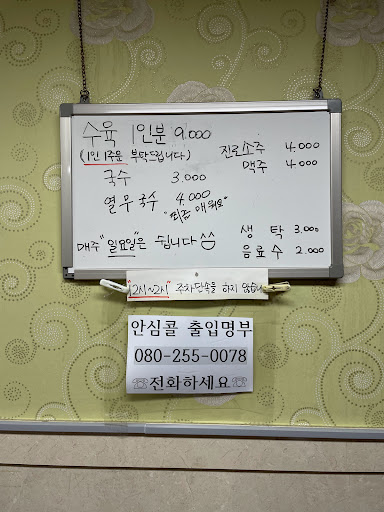 수육 1인분 9.000
(1인 1주문 부탁드립니다)
국수 3.000
열무국수 4.000
진로소주 4.000
맥주 4.000
매주 "일요일"은 쉽니다
생 탁 3.000
음료수 2.000
주차단속을 하지 않습니
안심콜 출입명부
080-255-0078
☏전화하세요☏